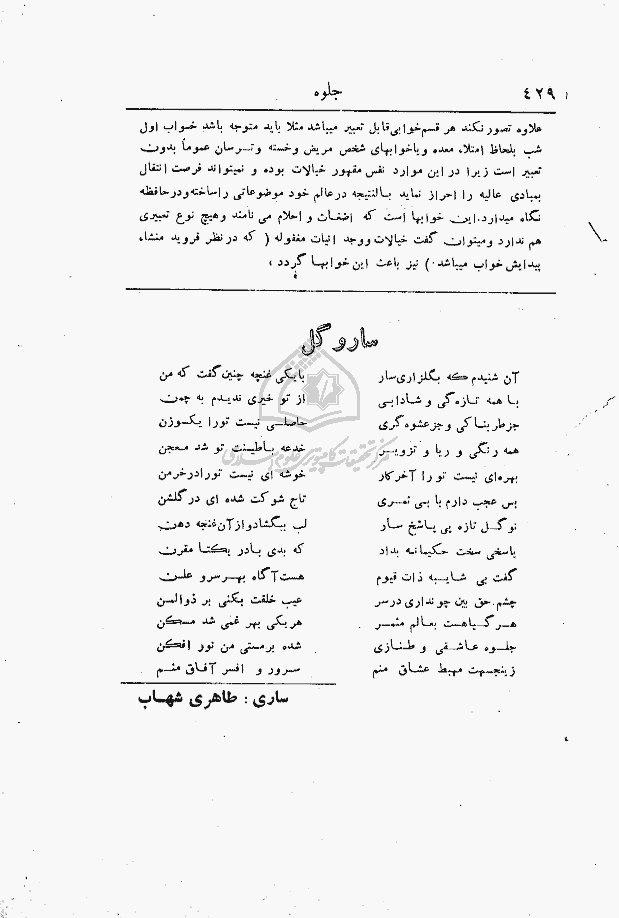 ٤٢٩ جلوه
علاوه تصور نکند هر قسم خوابی قابل تعبیر میباشد مثلا باید متوجه باشد خواب اول
شب بلحاظ امتلاء معده و یا خوابهای شخص مریض و خسته و ترسان عموماً بدون
تعبیر است زیرا در این موارد نفس مقهور خیالات بوده و نمیتواند فرصت انتقال
بمبادی عالیه را احراز نماید بالنتیجه در عالم خود موضوعاتی را ساخته و در حافظه
نگاه میدارد. این خوابها است که اضغاث و احلام می نامند و هیچ نوع تعبیری
هم ندارد و میتوان گفت خیالات و وجد انیات مغفوله ( که در نظر فروید منشاء
پیدایش خواب میباشد . ) نیز باعث این خوابها گردد ،
سار و گل
آن شنیدم که بگلزاری سار با یکی غنچه چنین گفت که من
با همه تازه گی و شادابی از تو خیری ندیدم به چمن
جز طربناکی و جز عشوه گری حاصلی نیست تورا یکوزن
همه رنگی و ریا و تزویر خدعه با طینت تو شد معجن
بهره‌ای نیست تورا آخر کار خوشه ای نیست تورا در خرمن
بس عجب دارم با بی ثمری تاج شوکت شده ای در گلشن
نوگل تازه پی پاسخ سار لب بگشاد و از آن غنچه دهن
پاسخی سخت حکیمانه بداد که بدی با در یکتا مقرن
گفت بی شایبه ذات قیوم هست آگاه بهر سر و علن
چشم حق بین چو نداری در سر عیب خلقت بکنی بر ذوالمن
هر گیاهست بعالم مثمر هر یکی بهر غمی شد مسکن
جلوه عاشقی و طنازی شده بر مستی من نور افکن
زینجهت مهبط عشاق منم سرور و افسر آفاق منم
ساری : طاهری شهاب
مرکز تحقیقات کامپیوتری علوم اسلامی